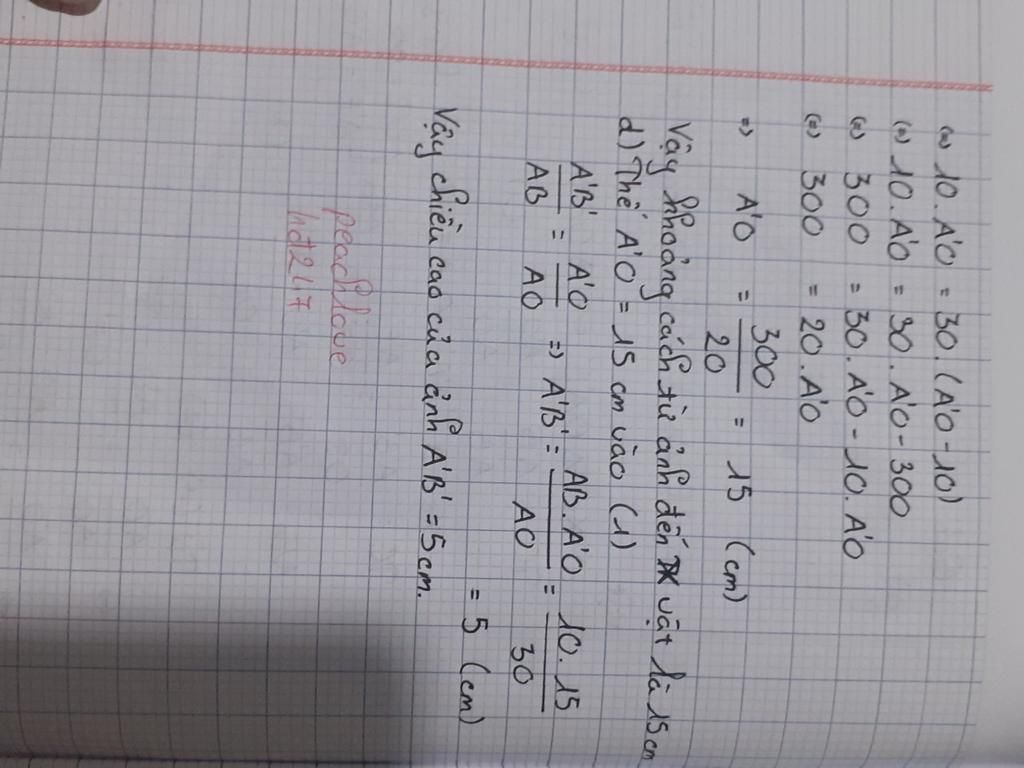 (=) 10.A'O = 30.(A'O - 10)
(=) 10.A'O = 30.A'O - 300
(=) 300 = 30.A'O - 10.A'O
(=) 300 = 20.A'O
=) A'O = 300/20 = 15 (cm)
Vậy khoảng cách từ ảnh đến vật là 15 cm
d) Thế A'O = 15 cm vào (1)
A'B'/AB = A'O/AO =) A'B' = AB.A'O/AO = 10.15/30
= 5 (cm)
Vậy chiều cao của ảnh A'B' = 5 cm.
peachlove
hđ247